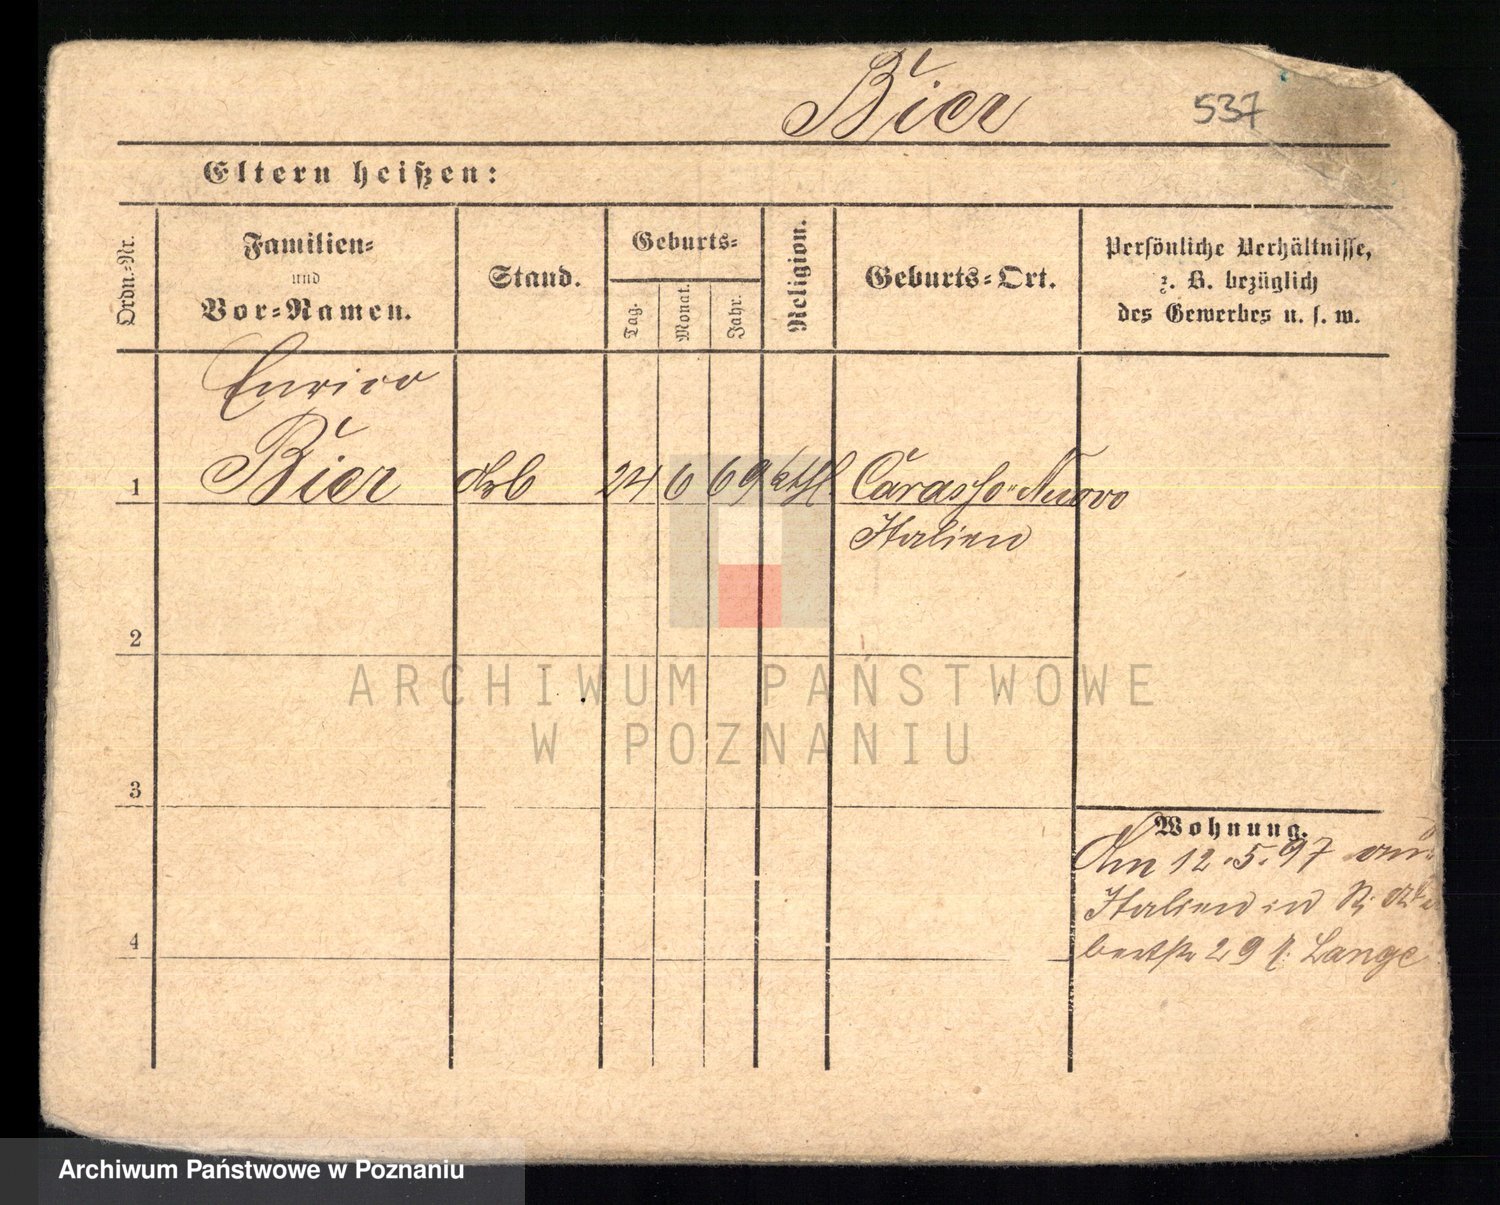 Bier
537
Eltern heißen:
Ordn.-Nr.
Familien-
und
Vor-Namen.
Stand.
Geburts-
Tag.
Monat.
Jahr.
Religion.
Geburts-Ort.
Persönliche Verhältnisse,
z. B. bezüglich
des Gewerbes u. s. w.
Enrico
1 Bier Arb 24 6 69 kthl. Carasso-Nuovo
Italien
2
3
4
Wohnung.
Am 12.5.97 aus
Italien in
29 b. Lange
ARCHIWUM PAŃSTWOWE
W POZNANIU
Archiwum Państwowe w Poznaniu